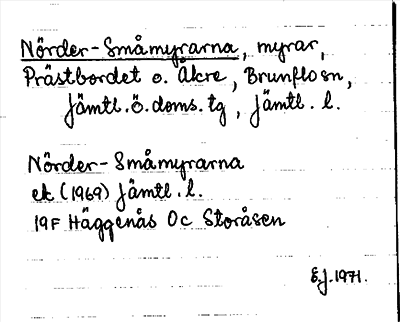 Nörder-Småmyrarna, myrar,
Prästbordet o. Åkre, Brunflo sn,
Jämtl.ö.doms.tg, Jämtl. l.
Nörder-Småmyrarna
ek (1969) Jämtl. l.
19F Häggenås 0c Storåsen
E.J. 1971.